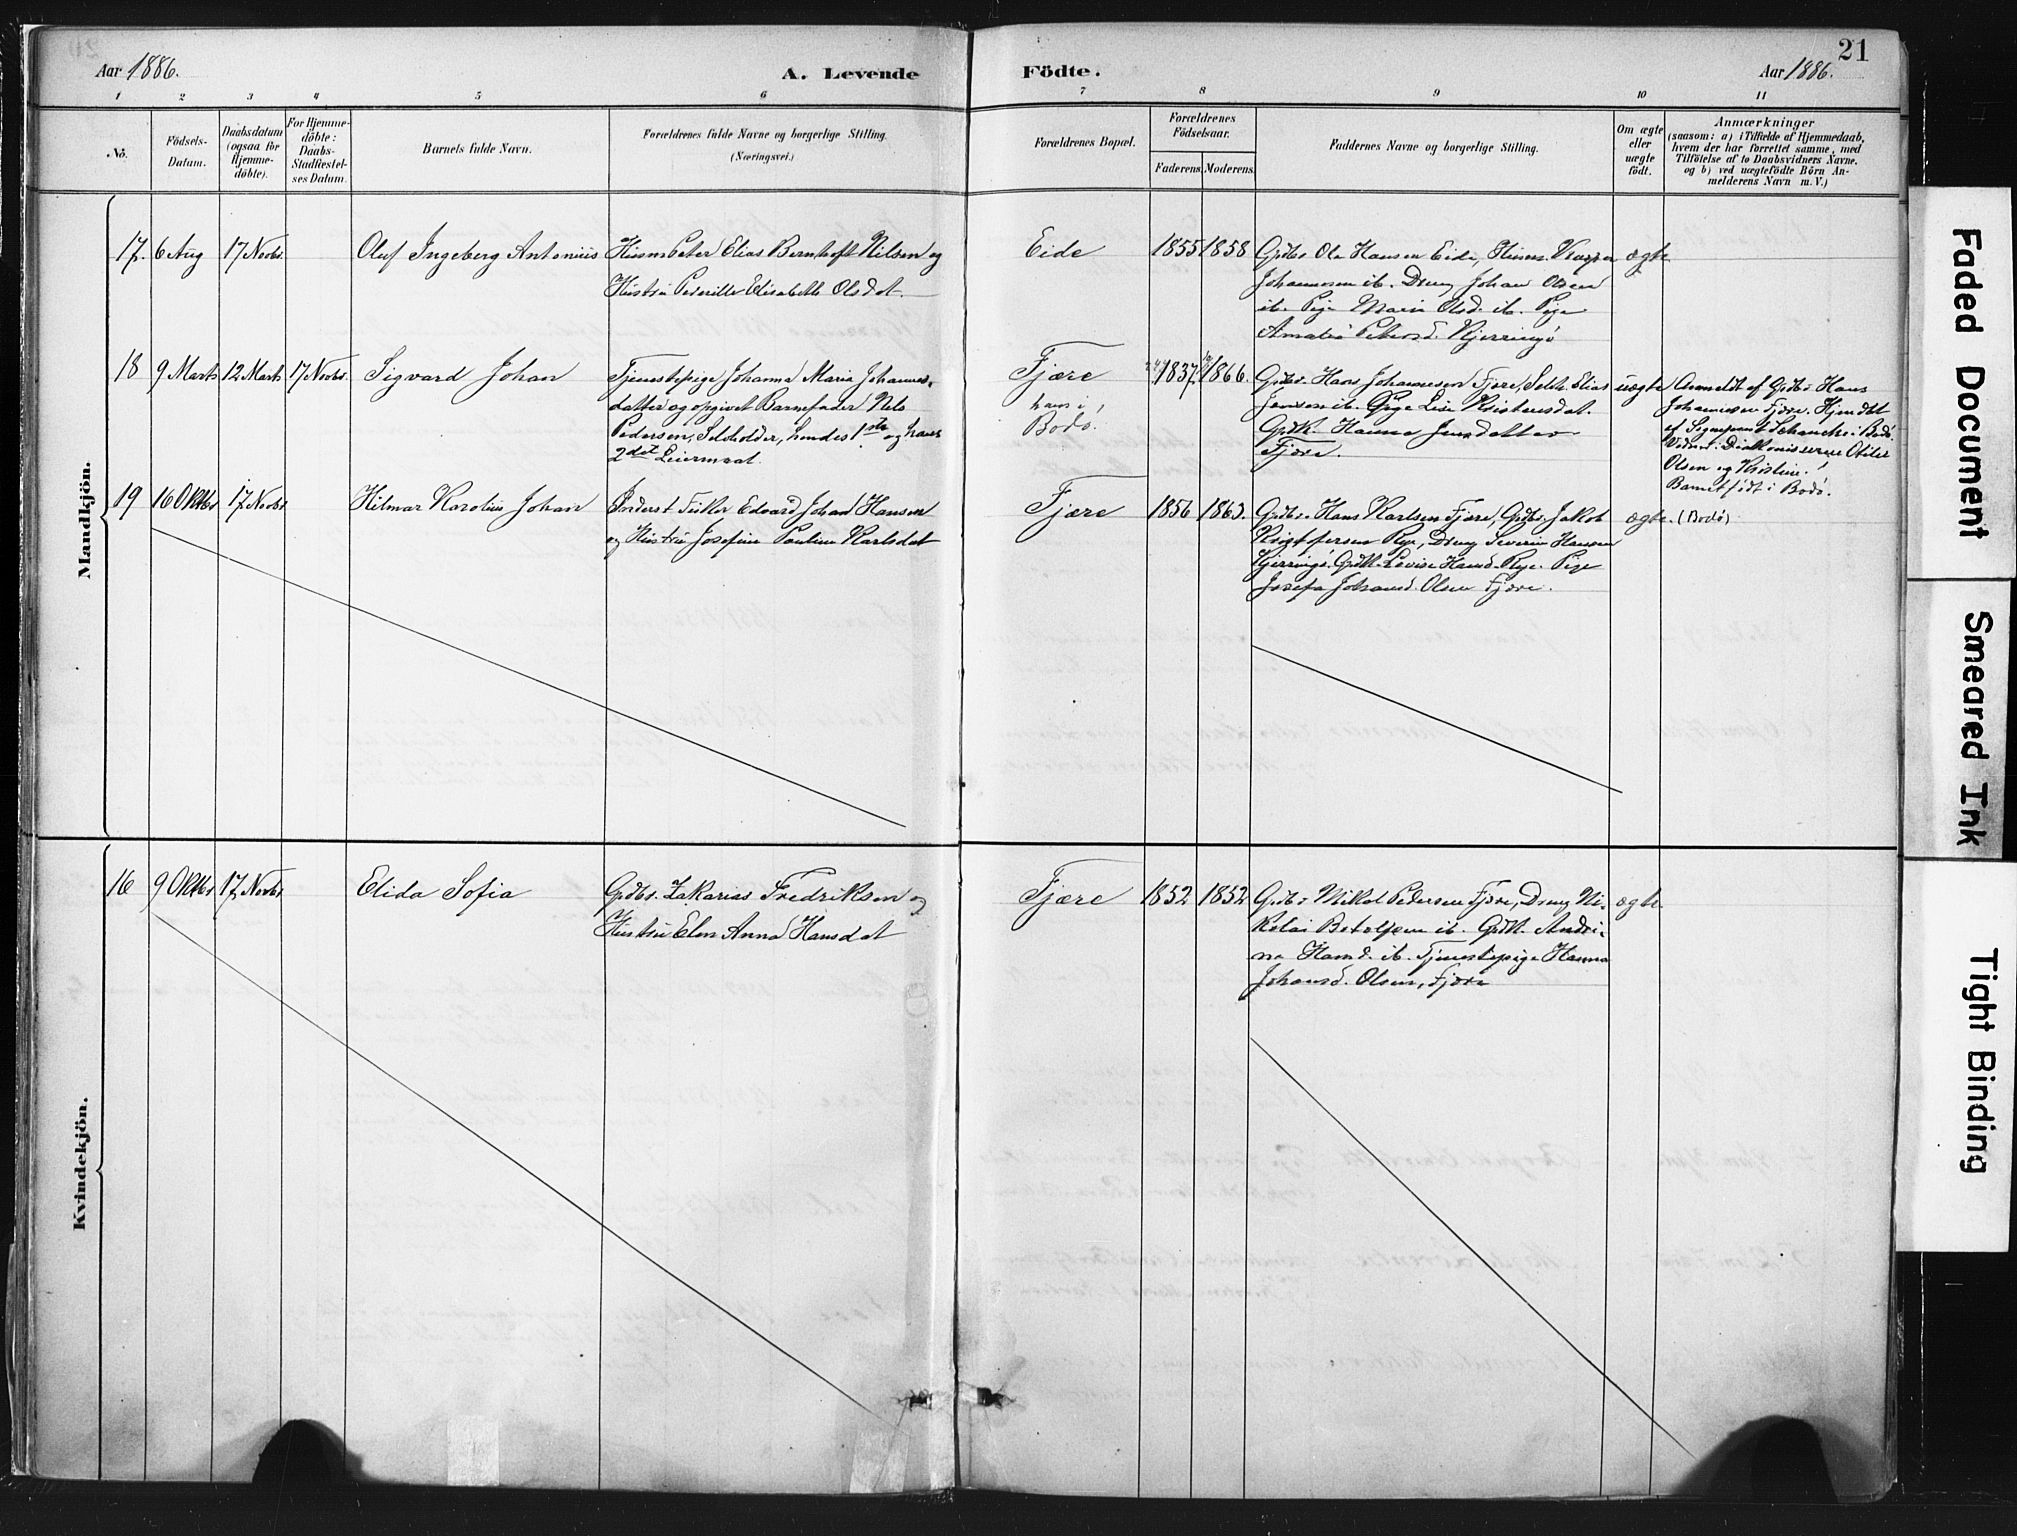 21
Aar 1886.
A. Levende
Födte.
Aar 1886.
1 2 3 4 5 6 7 8 9 10 11
No.
Födsels-
Datum.
Daabsdatum
(ogsaa for
Hjemme-
döbte).
For Hjemme-
döbte:
Daabs-
Stadfæstel-
ses Datum.
Barnets fulde Navn.
Forældrenes fulde Navne og borgerlige Stilling.
(Næringsvei.)
Forældrenes Bopæl.
Forældrenes
Födselsaar.
Faderens.
Moderens.
Faddernes Navne og borgerlige Stilling.
Om ægte
eller
uægte
födt.
Anmærkninger
(saasom: a) i Tilfælde af Hjemmedaab,
hvem der har forrettet samme, med
Tilföielse af to Daabsvidners Navne,
og b) ved uægtefödte Börn An-
melderens Navn m. V.)
Mandkjön.
17. 6 Aug 17 Novbr. Oluf Ingeberg Antonius
Husm. Peter Elias Bernhoft Nilsen og
Hustru Pernille Elisabeth Olsdat.
Eide
1855 1858
Gdbr. Ole Hansen Eide, Husm. Kasper
Johannesen ib. Dreng Johan Olsen
ib. Pige Marie Olsd. ib. Pige
Amalia Petersd. Kjerringö
ægte
18 9 Marts 12 Marts 17 Novbr. Sigvard Johan
Tjenestepige Johanna Maria Johannes-
datter og opgivet Barnefader Nels
Pedersen, Selvholder, hendes 1ste og hans
2det Leiermaal.
Fjære
han i
Bodö.
1837 1866.
Gdbr. Hans Johannesen Fjære, Selvh. Elias
Jensen ib. Pige Lise Kristensdat.
Gdk. Hanna Jensdatter
Fjære.
uægte
Anmeldt af Gdbr. Hans
Johannesen Fjære. Hjemdbt
af Sognepræst Schanche i Bodö.
Vidner: Diakonisserne Otilie
Olsen og Kristine
Barnet födt i Bodö.
19 16 Oktbr 17 Novbr Hilmar Karolius Johan
Inderst Fisker Edvard Johan Hansen
og Hustru Josefine Pauline Karlsdat
Fjære
1856 1863.
Gdbr. Hans Karlsen Fjære, Gdbr. Jakob
Kristofersen Rye, Dreng Severin Hansen
Kjerringö. Gdk. Lovise Hansd. Rye. Pige
Josefa Johansd. Olsen Fjære.
ægte.
(Bodö)
Kvindekjön.
16 9 Oktbr 17 Novbr Elida Sofia
Gdbr. Zakarias Fredriksen og
Hustru Elen Anna Hansdat
Fjære
1852 1852
Gdbr Mikal Pedersen Fjære, Dreng Ni-
kolai Betolfsen ib. Gdk. Andri-
ne Hansd. ib. Tjenestepige Hanna
Johansd. Olsen, Fjære
ægte.
Faded Document
Smeared Ink
Tight Binding